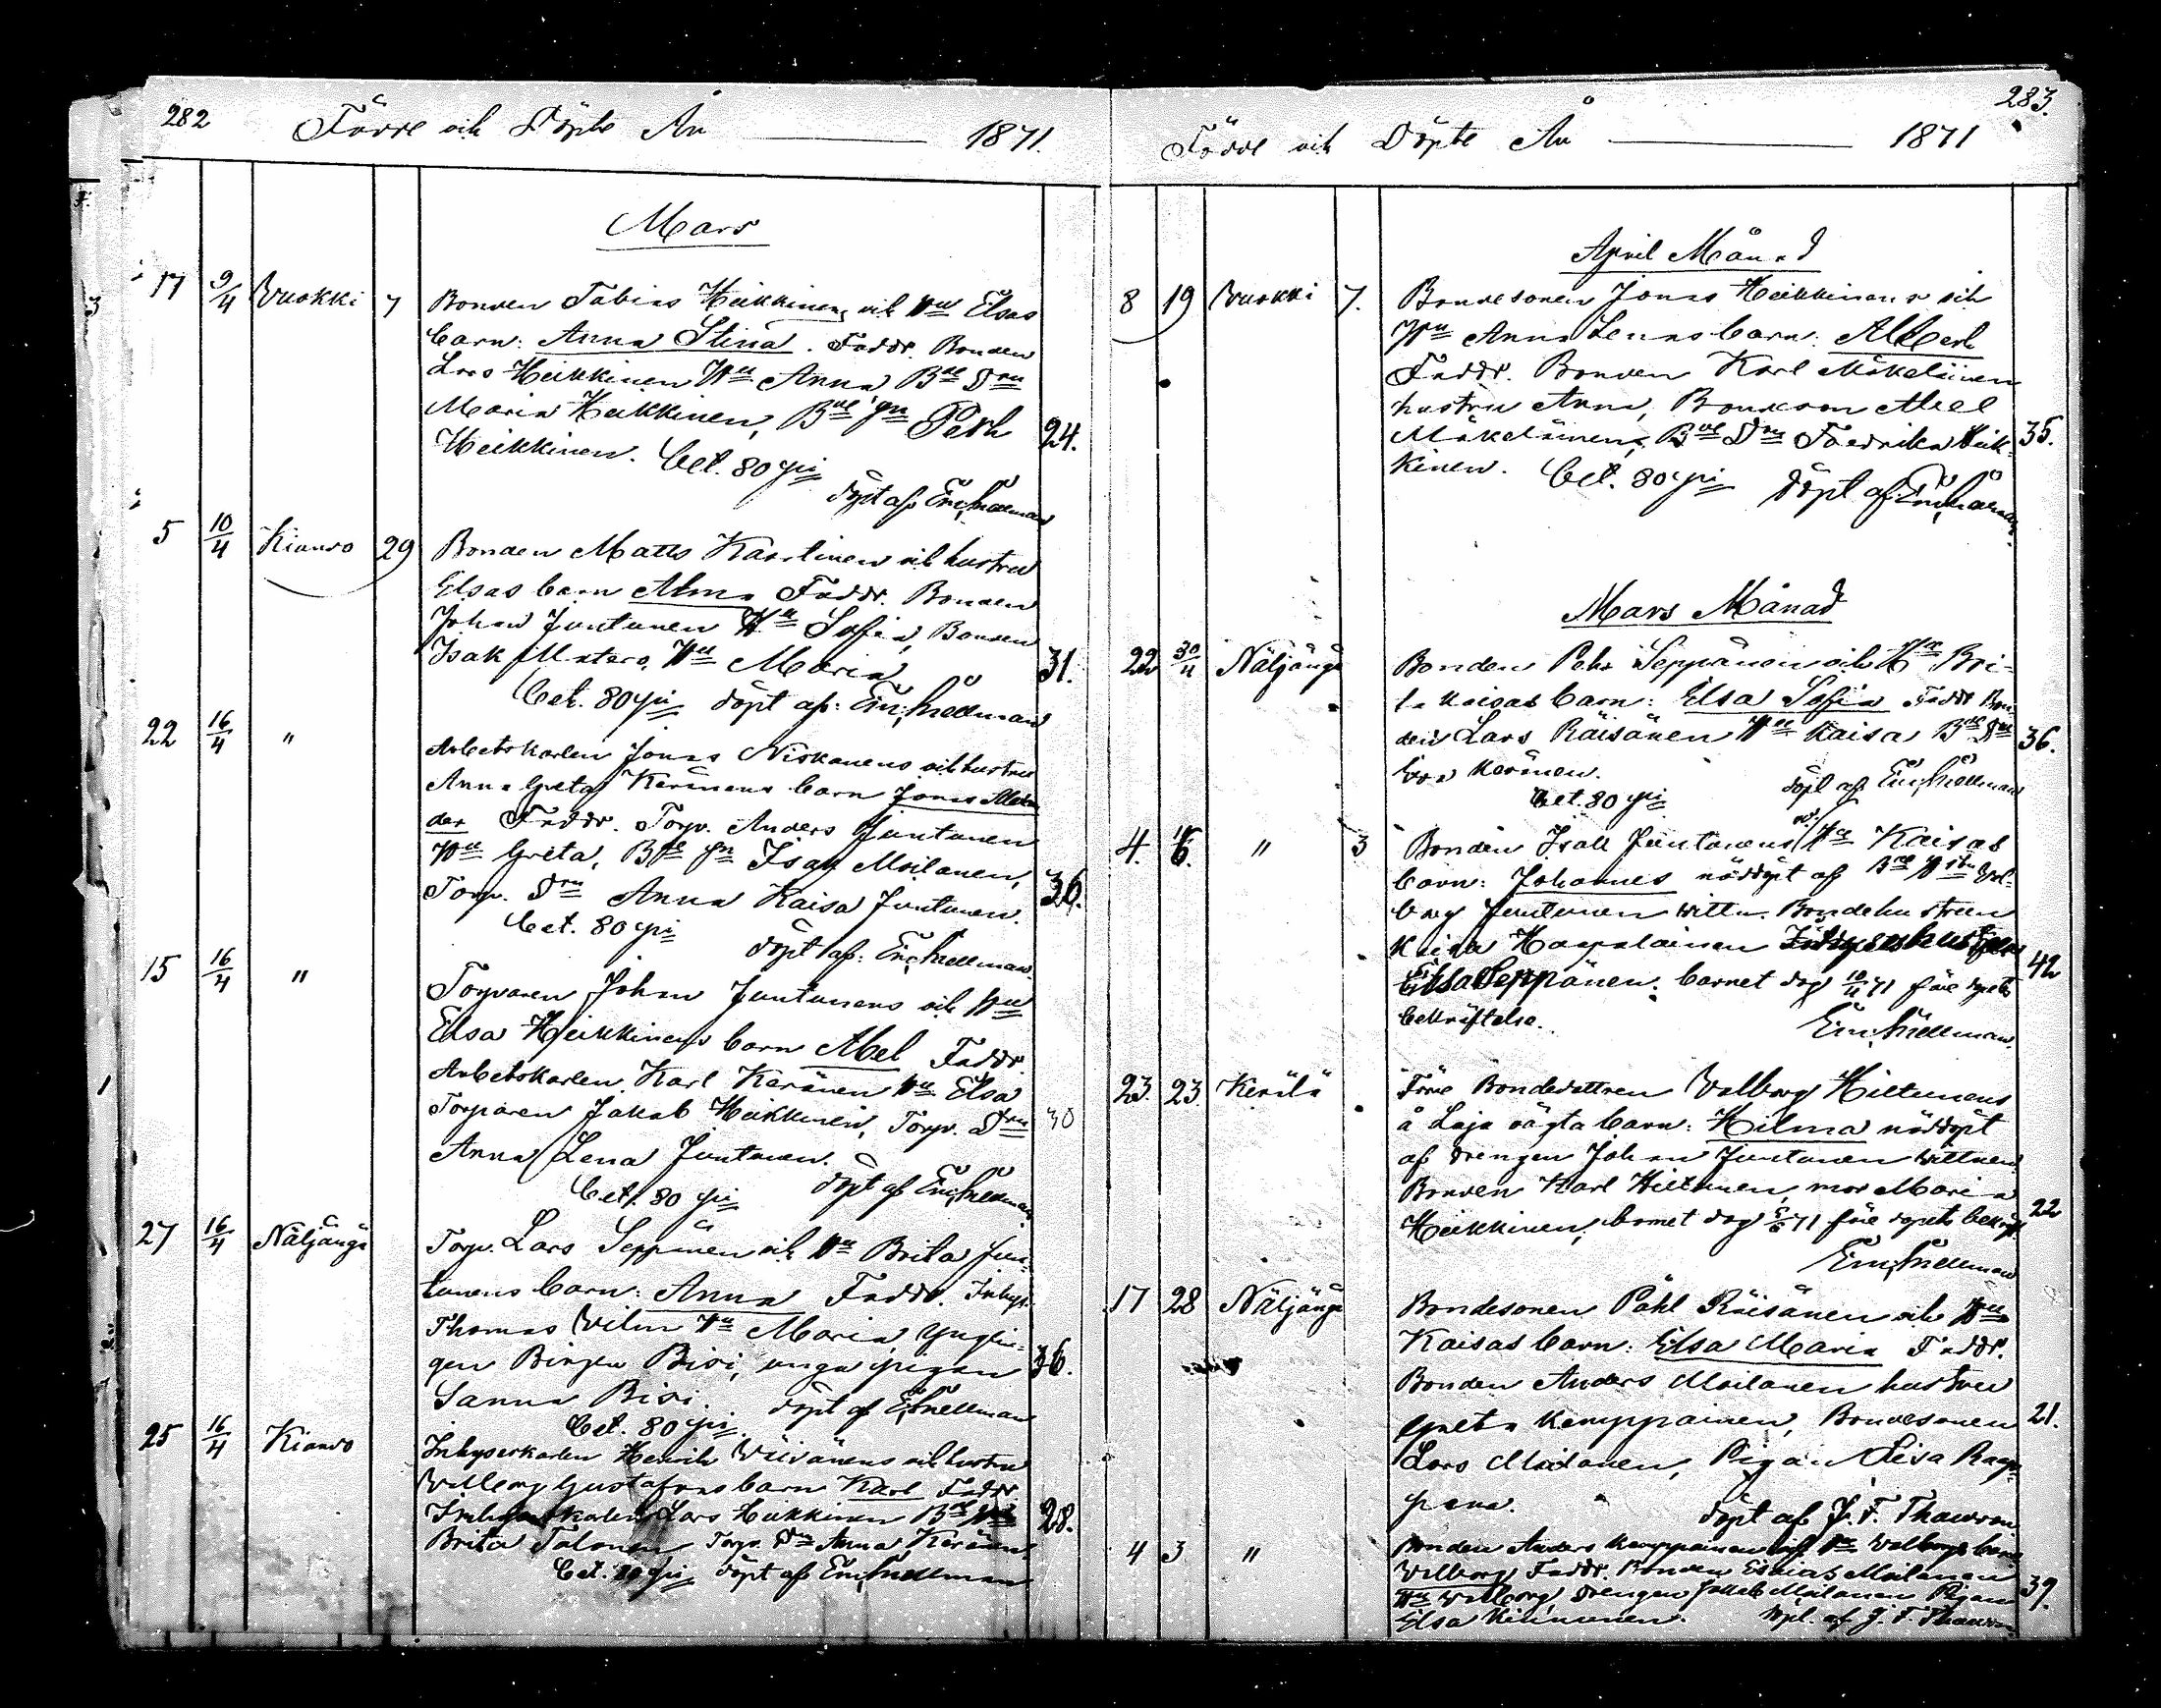 282
Födde och Döpte År 1871.
Mars
17 9/4 Vuokki 7 Bonden Tobias Heikkinens och Hu Elsas
barn: Anna Stina. Faddr. Bonden
Lars Heikkinen Hu Anna Bde Drn
Maria Heikkinen, Bde Pehr 24.
Heikkinen. Bet. 80 pi
döpt af Em. Snellman
5 10/4 Kianto 29 Bonden Matts Kaartinen och hustru
Elsas barn Alma Faddr. Bonden
Johan Juntunen Hu Sofia, Bonden
Isak Matero, Hu Maria 31.
Bet. 80 pi döpt af: Em. Snellman
22 16/4 " Arbetskarlen Jonas Niskanens och hustru
Anna Greta Keränens barn Jonas Alexan
der Faddr. Torp. Anders Juntunen
Hu Greta, Isak Moilanen, 36.
Torp. Drn Anna Kaisa Juntunen.
Bet. 80 pi döpt af: Em. Snellman.
15 16/4 " Torparen Johan Juntunens och Hu
Elsa Heikkinens barn Abel Faddr.
Arbetskarlen Karl Keränen Hu Elsa
Torparen Jakob Heikkinen, Torp. Drn 30
Anna Lena Juntunen.
Bet. 80 pi döpt af Em. Snellman
27 16/4 Näljänge Torp. Lars Seppänen och Hu Brita Jun-
tunens barn: Anna Faddr. Inhys.
Thomas Hu Maria, ynglin-
gen Birger Bisi, unga pigan 36.
Sanna Bisi. döpt af E. Snellman
Bet. 80 pi.
25 16/4 Kianto Inhyserkarlen Henrik Väisänens och hustru
barn Karl Faddr
Lars Heikkinen 28.
Brita Talonen Torp. Drn Anna Keränen
Bet. 80 pi döpt af Em. Snellman
283.
Födde och Döpte År 1871
April Månad
8 19 Vuokki 7. Bondesonen Jonas Heikkinens och
Hu Anna Lenas barn: Albert
Faddr. Bonden Karl Mäkeläinen
hustru Anna, Bondeson Abel
Mäkeläinen, Bde Drn Fredrika Heik- 35.
kinen. Bet. 80 pi döpt af Em. Snellman.
Mars Månad
22 30/4 Näljänge Bonden Pehr Seppänen och Hu Bri-
ta Kaisas barn: Elsa Sofia Faddr Bon
den Lars Räisänen Hu Kaisa Bde Drn 36.
Eva Keränen. döpt af Em. Snellman
Bet. 80 pi
4. " 3 Bonden Isak Juntunens o. Hu Kaisas
barn: Johannes nöddöpt af Val-
borg Juntunen vittn. Bondehustrun
Kaisa Haapalainen
Elsa Seppänen. barnet dog 10/4 71 före dopets 42
bekräftelse. Em. Snellman.
23. 23. Kerälä Före Bondedottren Valborg Hiltunens
å Laja oägta barn: Hilma nöddöpt
af drengen Johan Juntunen vittnen
Bonden Karl Hiltunen, mor Maria
Heikkinen, barnet dog 71 före dopets bekräft. 22
Em. Snellman
17 28 Näljänge Bondesonen Påhl Räisänen och Hu
Kaisas barn: Elsa Maria Faddr.
Bonden Anders Moilanen hustru
Greta Kemppainen, Bondesonen 21.
Lars Moilanen, Pigan
döpt af J. F. Thauvón
4 3 " Bonden Anders Kemppainen och Hu Valborgs barn
Valborg Faddr. Bonden Esaias Moilanen
Hu Valborg, drengen Jakob Moilanen Pigan 39.
Elsa Kinnunen. döpt af J. F. Thauvón